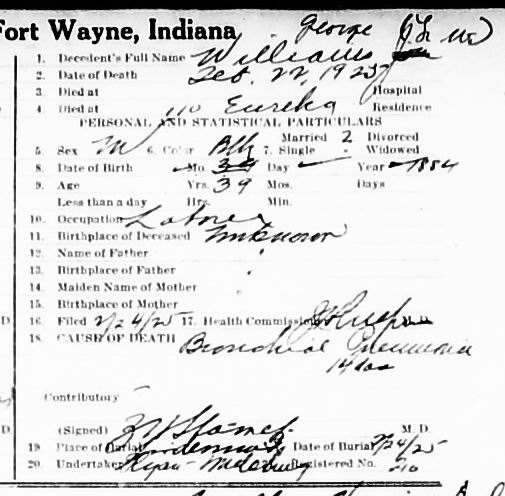 Fort Wayne, Indiana George
1. Decedent's Full Name Williams
2. Date of Death Feb. 22, 1925
3. Died at Hospital
4. Died at 110 Eureka Residence
PERSONAL AND STATISTICAL PARTICULARS
Married 2 Divorced
5. Sex M 6. Color Blk 7. Single Widowed
8. Date of Birth Mo. Day Year 1884
9. Age Yrs. 39 Mos. Days
Less than a day Hrs. Min.
10. Occupation Laborer
11. Birthplace of Deceased Unknown
12. Name of Father
13. Birthplace of Father
14. Maiden Name of Mother
15. Birthplace of Mother
D. 16. Filed 2/24/25 17. Health Commissioner M. D.
18. CAUSE OF DEATH Bronchial Pneumonia
14 das
Contributory
D. (Signed) M. D.
19. Place of Burial Lindenwood Date of Burial 2/24/25
20. Undertaker Registered No.